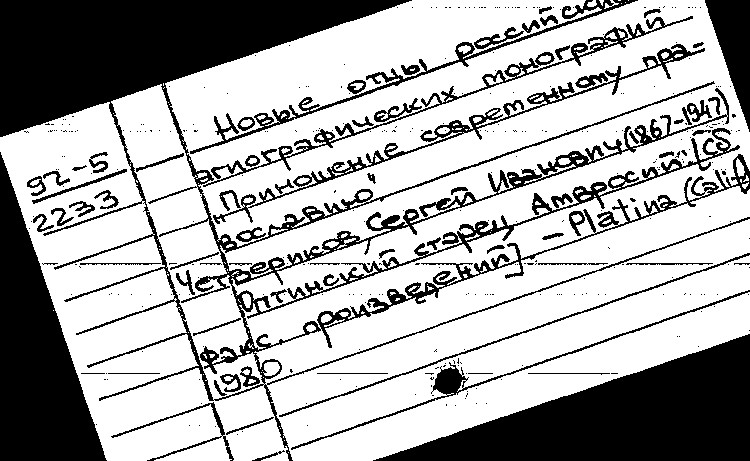 Новые отцы российских
агиографических монографий
"Приношение современному пра-
вославию".
92-5
2233
Четвериков, Сергей Иванович (1867-1947).
Оптинский старец Амвросий: [Сб.
факс. произведений]. – Platina (Calif
1980.